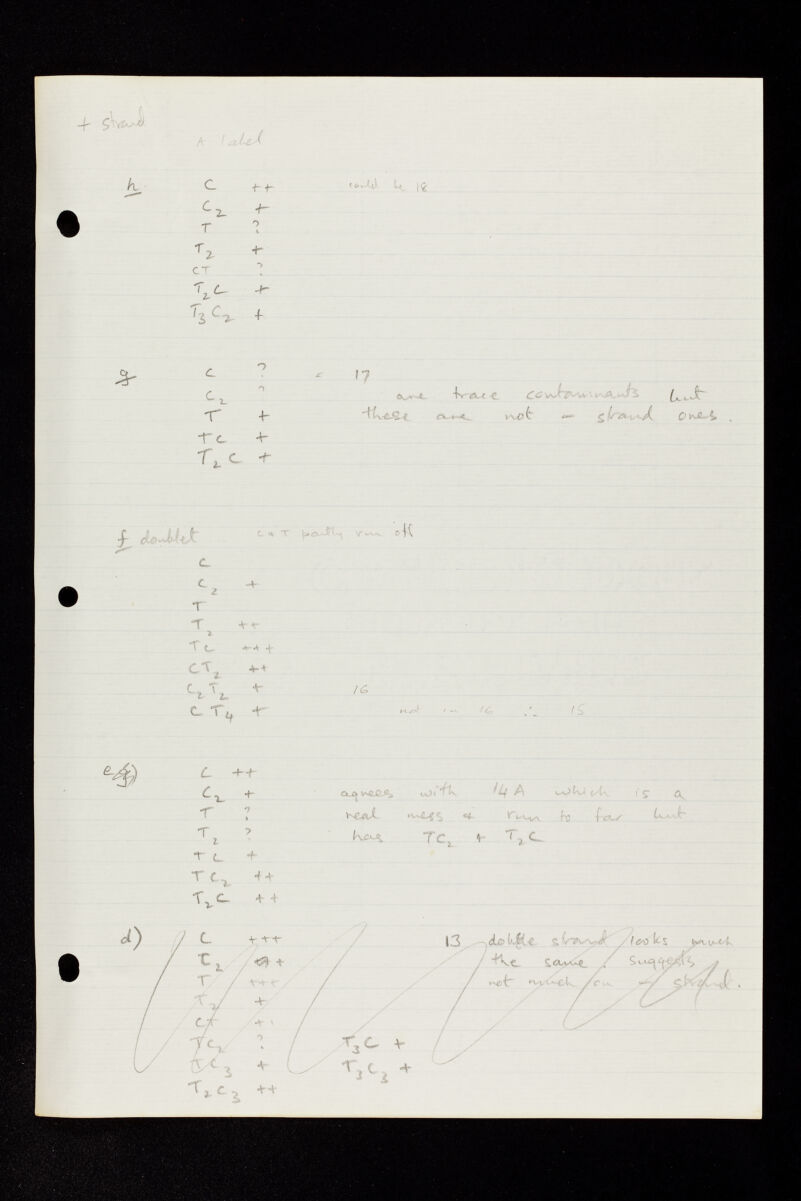 + strand
A label
h C ++ could be 18
C2 +
T ?
T2 +
CT ?
T2C +
T3C2 +
g C ? = 17
C2 ? are trace contaminants but
T + these are not - strand ones.
TC +
T2C +
f doublet C + T partly run off
C
C2 +
T
T2 ++
TC +++
CT2 ++
C2T2 + 16
CT4 + not in 16 ∴ 15
e) C ++
C2 + agrees with 14A which is a
T ? real mess & run to far but
T2 ? has TC2 + T2C
TC +
TC2 ++
T2C ++
d) C +++ 13 double strand looks much
C2 ++ the same. suggests
T +++ not much on - strand.
T2 +
CT ++
TC2 ? T3C +
TC3 + T3C3 +
T2C3 ++